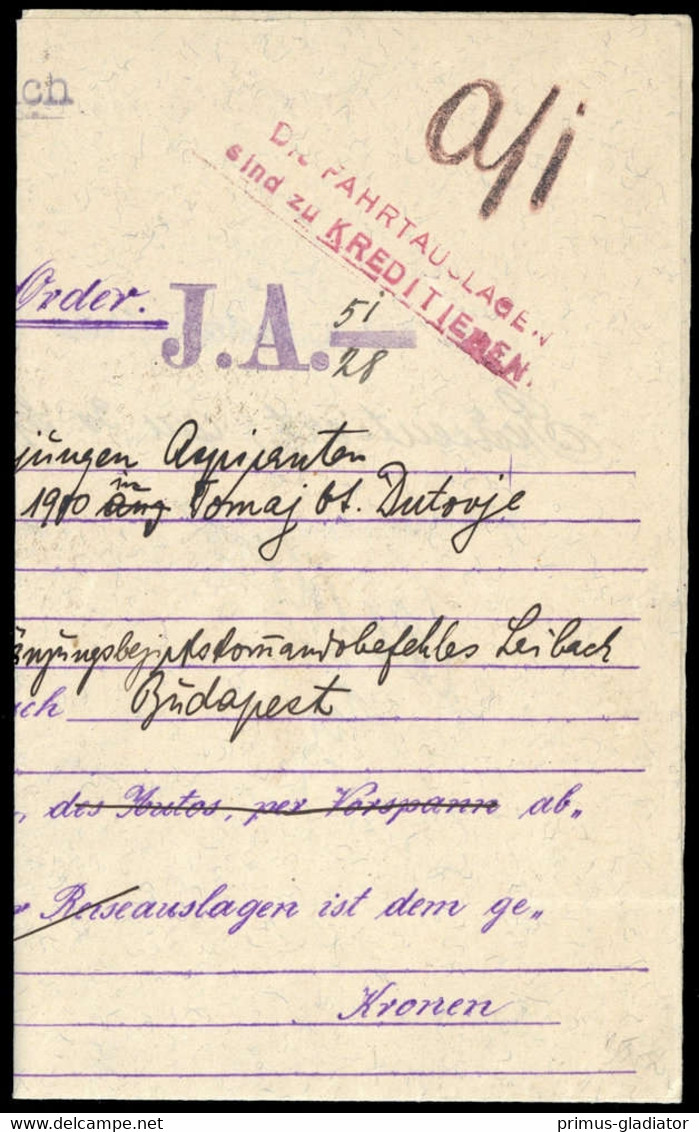 ich
a/i
DIE FAHRTAUSLAGEN
sind zu KREDITIEREN.
Order.
J.A. 51
28
jüngen Aspiranten
1910 in Tomaj bt. Dutovje
Laibach
ch Budapest
des Autos, per Vorspann ab„
Reiseauslagen ist dem ge„
Kronen
delcampe.net
primus-gladiator